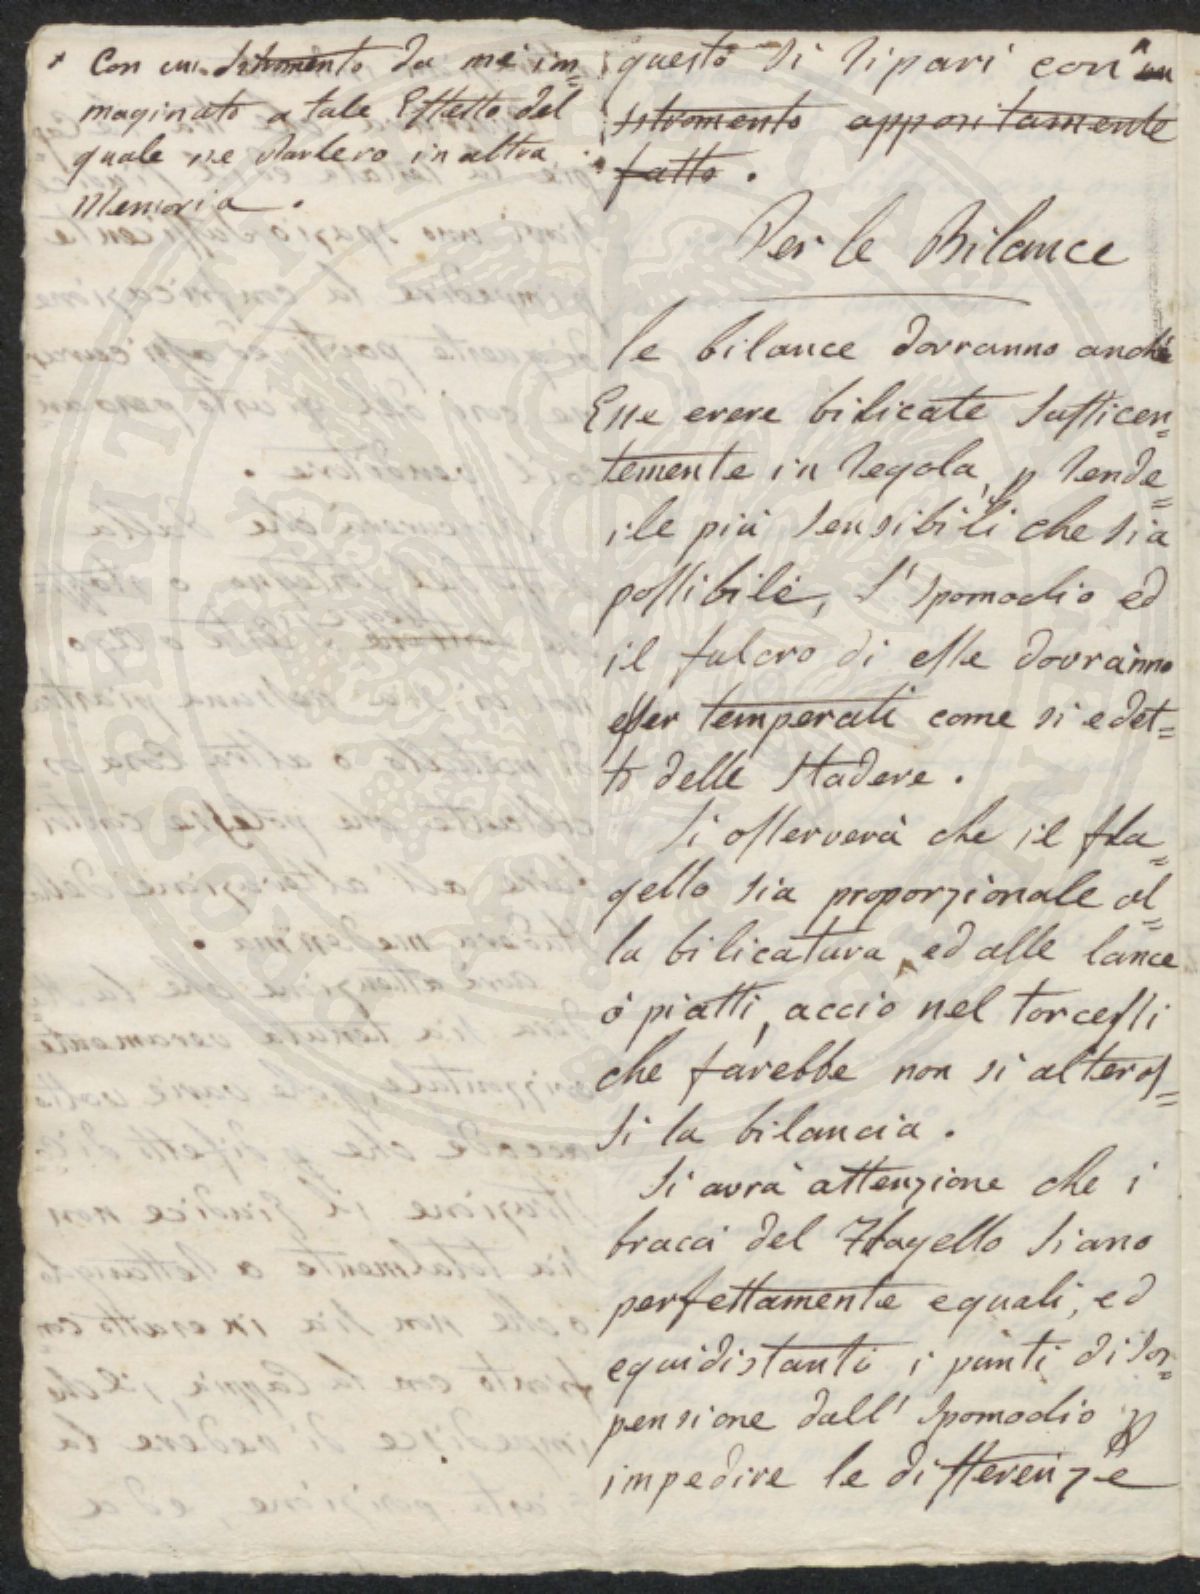 + Con un Istromento da me im=
maginato a tale Effetto del
quale ne parlero in altra
Memoria.
questo si ripari con un
istromento appositamente
fatto.
Per le Bilance
le bilance dovranno anche
Esse essere bilicate sufficen=
temente in regola, p rende=
rle più sensibili che sia
possibile, l'Ipomoclio ed
il fulcro di esse dovranno
esser temperati come si e det=
to delle Stadere.
Si osserverà che il fla=
gello sia proporzionale al=
la bilicatura, ed alle lance
ò piatti, acciò nel torcessi
che farebbe non si alteras=
si la bilancia.
Si avrà attenzione che i
bracci del Flagello siano
perfettamente equali, ed
equidistanti i punti di sos=
pensione dall'Ipomoclio p
impedire le differenze